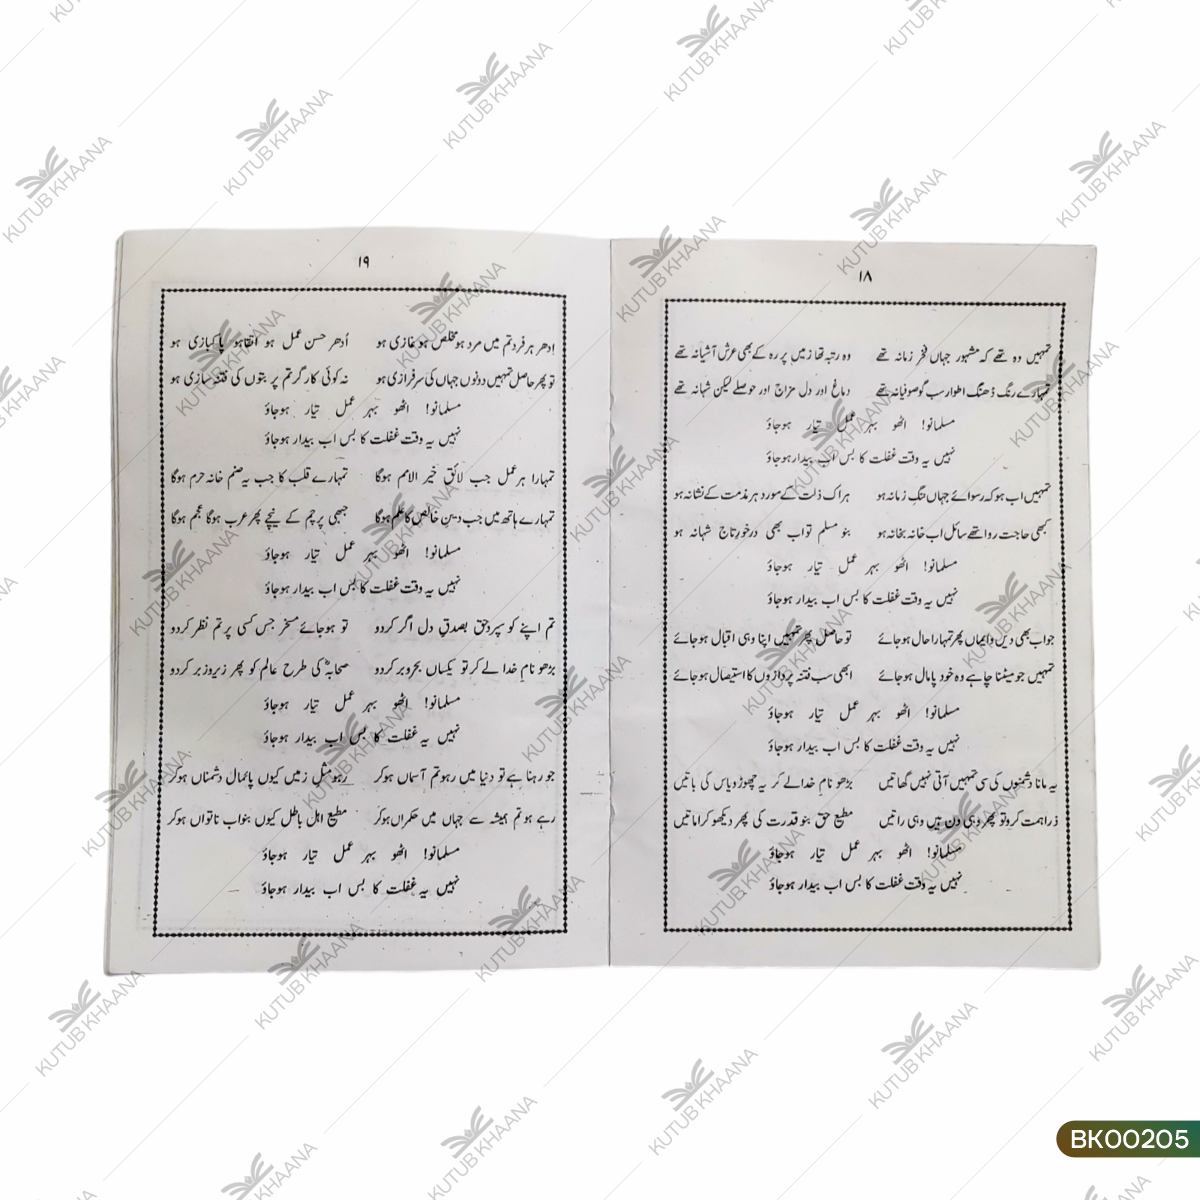 ۱۸
تمہیں وہ تھے کہ مشہور جہاں فخر زمانہ تھے وہ رتبہ تھا زمیں پر رہ کے بھی عرش آشیانہ تھے
تمہارے رنگ ڈھنگ اطوار سب گو صوفیانہ تھے دماغ اور دل مزاج اور حوصلے لیکن شہانہ تھے
مسلمانو! اٹھو بہر عمل تیار ہوجاؤ
نہیں یہ وقت غفلت کا بس اب بیدار ہوجاؤ
تمہیں اب ہو کہ رسوائے جہاں ننگِ زمانہ ہو ہر اک ذلت کے مورد ہر مذمت کے نشانہ ہو
کبھی حاجت روا تھے سائل اب خانہ بخانہ ہو بنو مسلم تو اب بھی درخورِ تاج شہانہ ہو
مسلمانو! اٹھو بہر عمل تیار ہوجاؤ
نہیں یہ وقت غفلت کا بس اب بیدار ہوجاؤ
جو اب بھی دیں و ایماں پھر تمہارا حال ہوجائے تو حاصل پھر تمہیں اپنا وہی اقبال ہوجائے
تمہیں جو میٹنا چاہے وہ خود پامال ہوجائے ابھی سب فتنہ پردازوں کا استیصال ہوجائے
مسلمانو! اٹھو بہر عمل تیار ہوجاؤ
نہیں یہ وقت غفلت کا بس اب بیدار ہوجاؤ
یہ مانا دشمنوں کی سی تمہیں آتی نہیں گھاتیں بڑھو نامِ خدا لے کر یہ چھوڑو یاس کی باتیں
ذرا ہمت کرو تو پھر وہی دن ہیں وہی راتیں مطیع حق بنو قدرت کی پھر دیکھو کراماتیں
مسلمانو! اٹھو بہر عمل تیار ہوجاؤ
نہیں یہ وقت غفلت کا بس اب بیدار ہوجاؤ
۱۹
اِدھر ہر فرد تم میں مرد ہو مخلص ہو غازی ہو اُدھر حسن عمل ہو اتقا ہو پاکبازی ہو
تو پھر حاصل تمہیں دونوں جہاں کی سرفرازی ہو نہ کوئی کارگر تم پر بتوں کی فتنہ سازی ہو
مسلمانو! اٹھو بہر عمل تیار ہوجاؤ
نہیں یہ وقت غفلت کا بس اب بیدار ہوجاؤ
تمہارا ہر عمل جب لائق خیر الامم ہوگا تمہارے قلب کا جب یہ صنم خانہ حرم ہوگا
تمہارے ہاتھ میں جب دینِ خالص کا علم ہوگا جبھی پرچم کے نیچے پھر عرب ہوگا عجم ہوگا
مسلمانو! اٹھو بہر عمل تیار ہوجاؤ
نہیں یہ وقت غفلت کا بس اب بیدار ہوجاؤ
تم اپنے کو سپرد حق بصدقِ دل اگر کردو تو ہوجائے مسخر جس کسی پر تم نظر کردو
بڑھو نامِ خدا لے کر تو یکساں بحر و بر کردو صحابہؓ کی طرح عالم کو پھر زیر و زبر کردو
مسلمانو! اٹھو بہر عمل تیار ہوجاؤ
نہیں یہ غفلت کا بس اب بیدار ہوجاؤ
جو رہنا ہے تو دنیا میں رہو تم آسماں ہوکر رہو مثلِ زمیں کیوں پائمال دشمناں ہوکر
رہے ہو تم ہمیشہ سے جہاں میں حکمراں ہوکر مطیع اہل باطل کیوں بنو اب ناتواں ہوکر
مسلمانو! اٹھو بہر عمل تیار ہوجاؤ
نہیں یہ غفلت کا بس اب بیدار ہوجاؤ
KUTUB KHAANA
BK00205